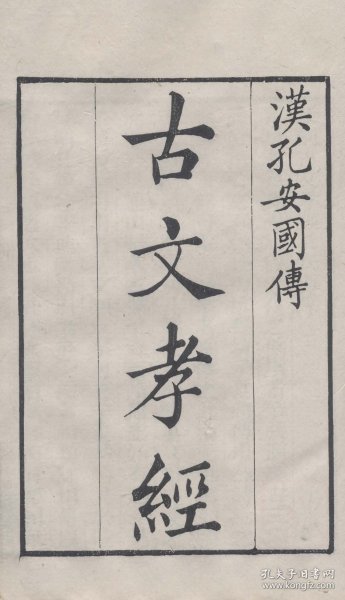 漢孔安國傳
古文孝經
孔夫子旧书网
www.kongfz.com